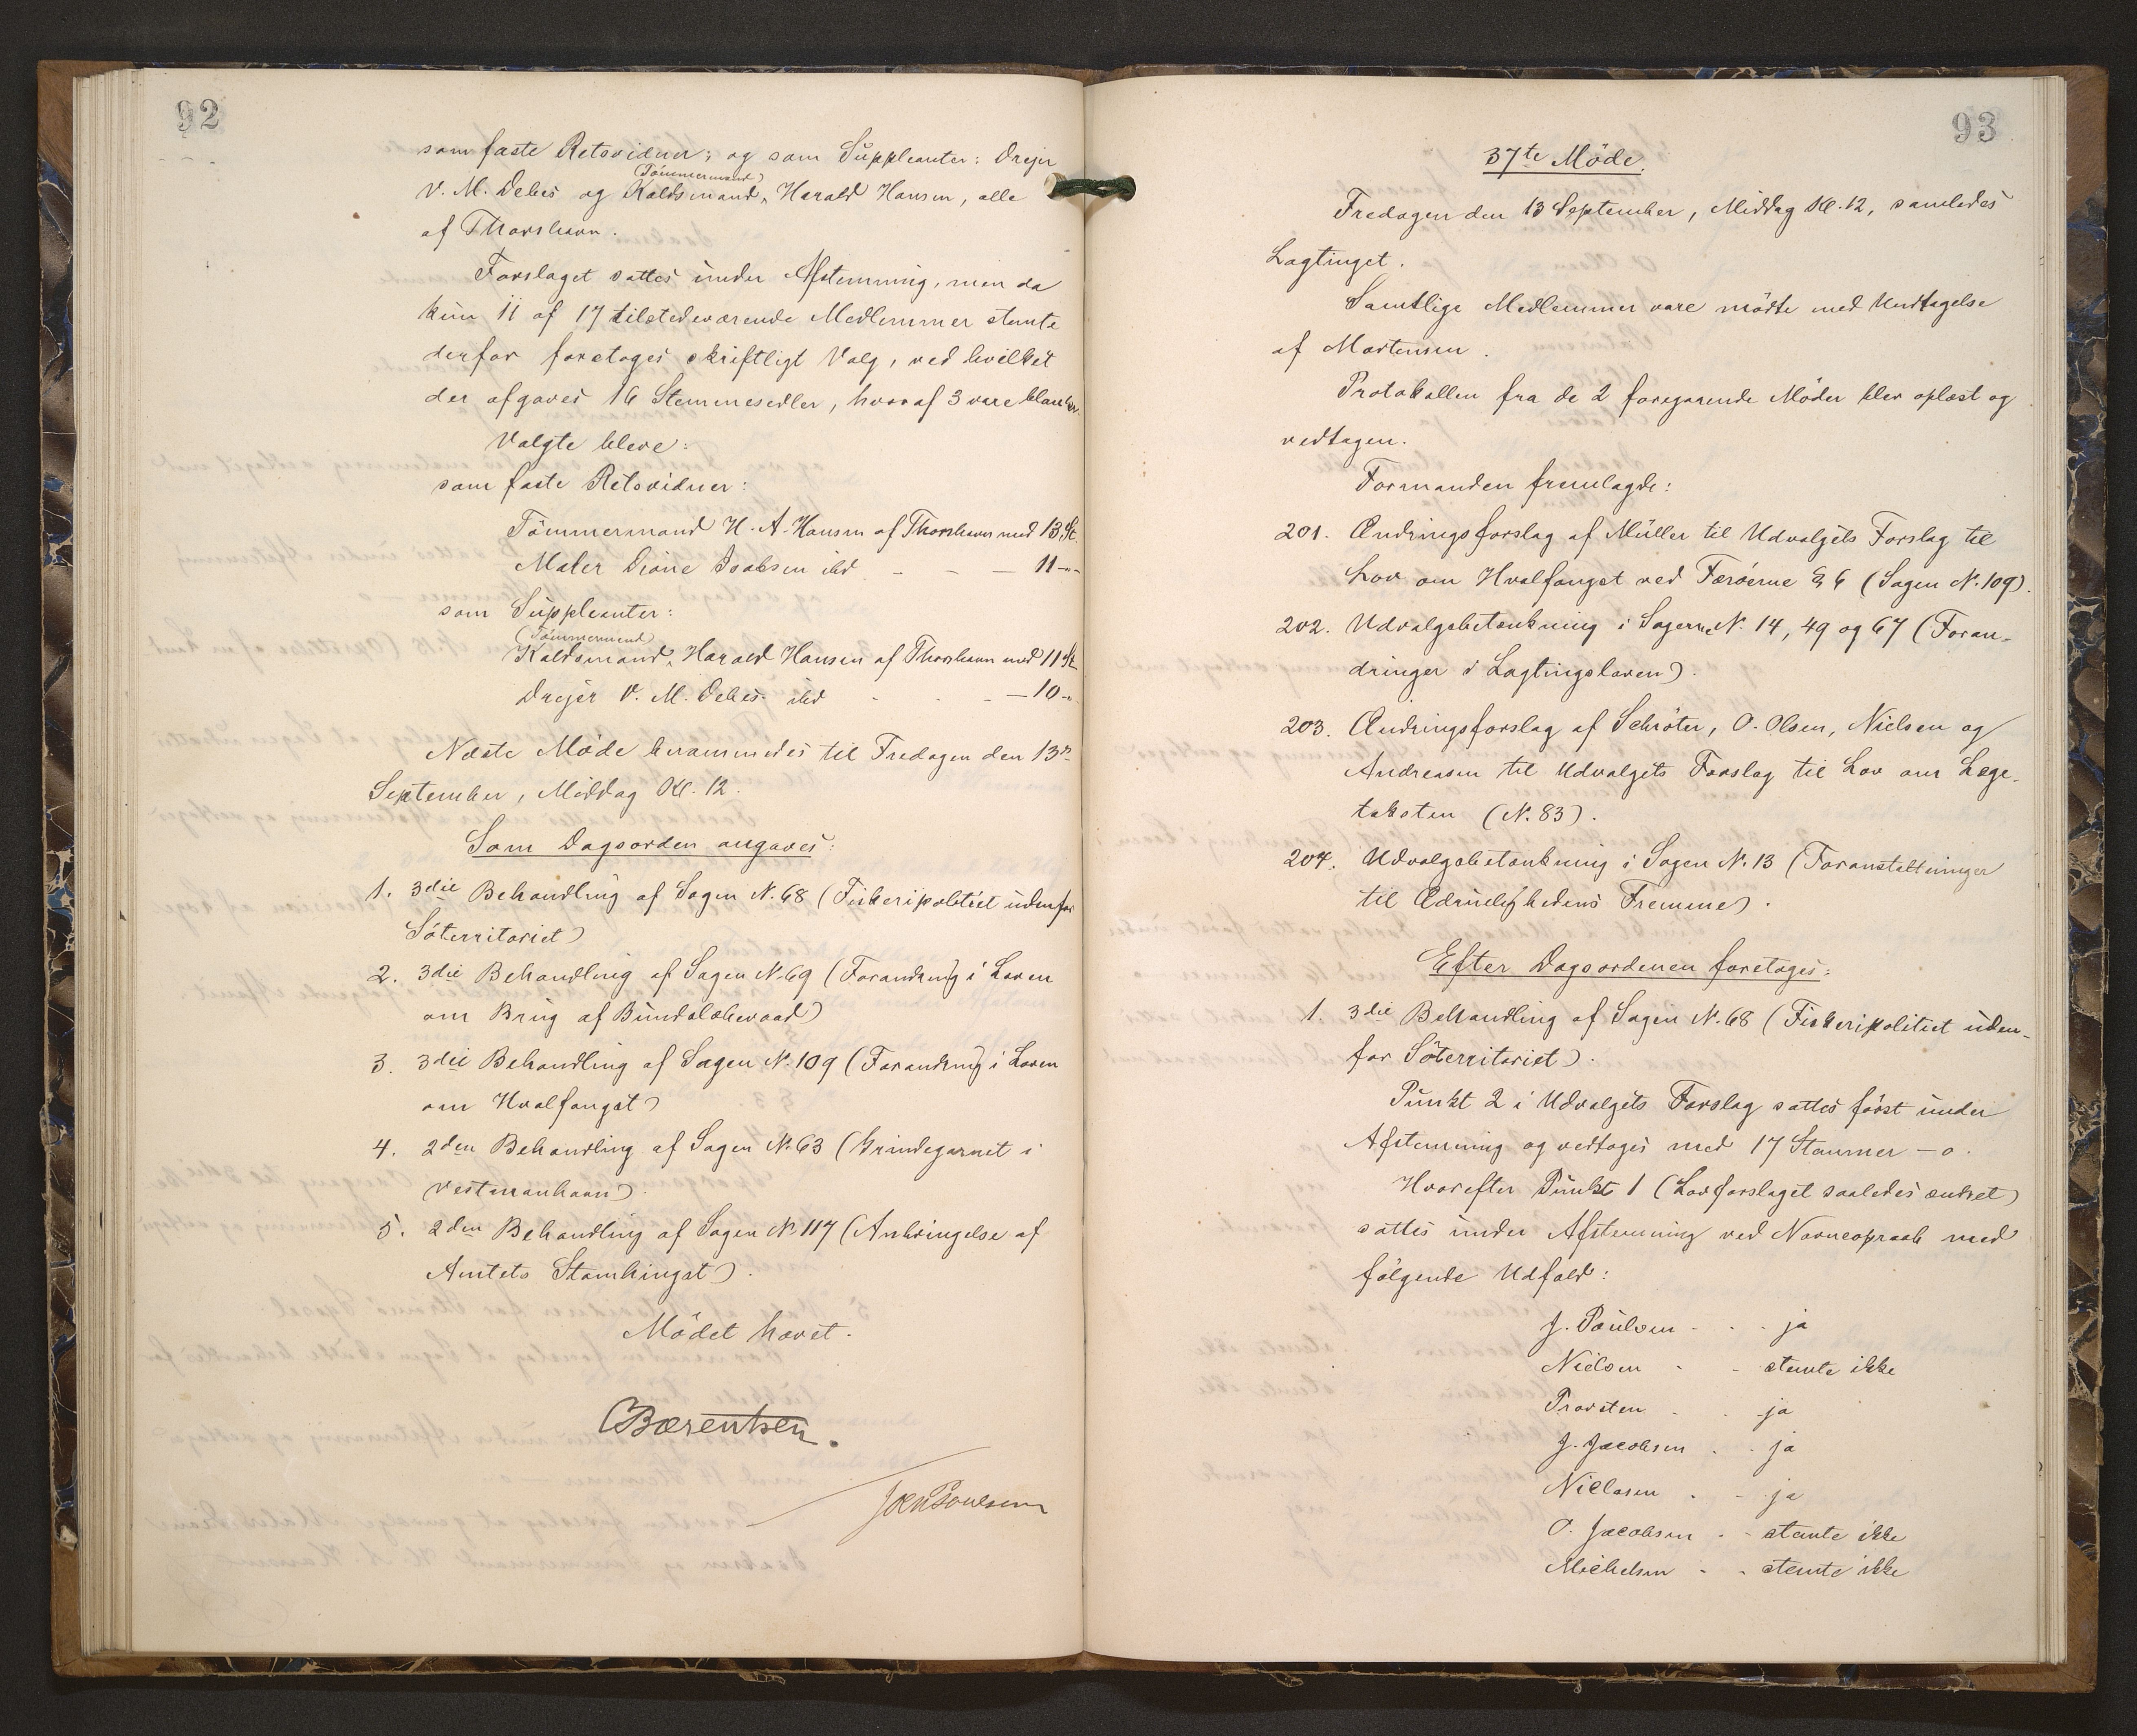 92
som faste Retsvidner; og som Suppleanter: Drejer
V. M. Debes og Koldsmand (Tömmermand) Harald Hansen, alle
af Thorshavn.
Forslaget sattes under Afstemning, men da
kun 11 af 17 tilstedeværende Medlemmer stemte
derfor foretoges skriftligt Valg, ved hvilket
der afgaves 16 Stemmesedler, hvoraf 3 vare blanke.
Valgte bleve:
som faste Retsvidner:
Tömmermand H. A. Hansen af Thorshavn med 13 St.
Maler Dione Isaksen ibd - - - 11 -"-
som Suppleanter:
Koldsmand (Tömmermand) Harald Hansen af Thorshavn med 11 St
Drejer V. M. Debes ibd - - - 10 -"-
Næste Möde berammedes til Fredagen den 13de
September, Middag Kl. 12.
Som Dagsorden angaves:
1. 3die Behandling af Sagen N. 68 (Fiskeripolitiet udenfor
Söterritoriet)
2. 3die Behandling af Sagen N. 69 (Forandring i Loven
om Brug af Bundslæbevaad)
3. 3die Behandling af Sagen N. 109 (Forandring i Loven
om Hvalfangst)
4. 2den Behandling af Sagen N. 63 (Grindegarnet i
Vestmanhavn).
5. 2den Behandling af Sagen N. 117 (Anbringelse af
Amtets Stamhingst).
Mödet hævet.
CBærentsen.
Joen Poulsen
93
37te Möde.
Fredagen den 13 September, Middag Kl. 12, samledes
Lagtinget.
Samtlige Medlemmer vare mödte med Undtagelse
af Mortensen.
Protokollen fra de 2 foregaaende Möder blev oplæst og
vedtagen.
Formanden fremlagde:
201. Ændringsforslag af Müller til Udvalgets Forslag til
Lov om Hvalfangst ved Færöerne § 6 (Sagen N. 109).
202. Udvalgsbetænkning i Sagerne N. 14, 49 og 67 (Foran-
dringer i Lagtingsloven).
203. Ændringsforslag af Schröter, O. Olsen, Nielsen og
Andreasen til Udvalgets Forslag til Lov om Læge-
taksten (N. 83).
204. Udvalgsbetænkning i Sagen N. 13 (Foranstaltninger
til Ædruelighedens Fremme).
Efter Dagsordenen foretoges:
1. 3die Behandling af Sagen N. 68 (Fiskeripolitiet uden-
for Söterritoriet).
Punkt 2 i Udvalgets Forslag sattes först under
Afstemning og vedtoges med 17 Stemmer - 0.
Hvorefter Punkt 1 (Lovforslaget saaledes ændret)
sattes under Afstemning ved Navneopraab med
fölgende Udfald:
J. Poulsen - - - ja
Nielsen - - stemte ikke
Provsten - - ja
J. Jacobsen - - ja
Niclasen - - ja
O. Jacobsen - - stemte ikke
Michelsen - - stemte ikke